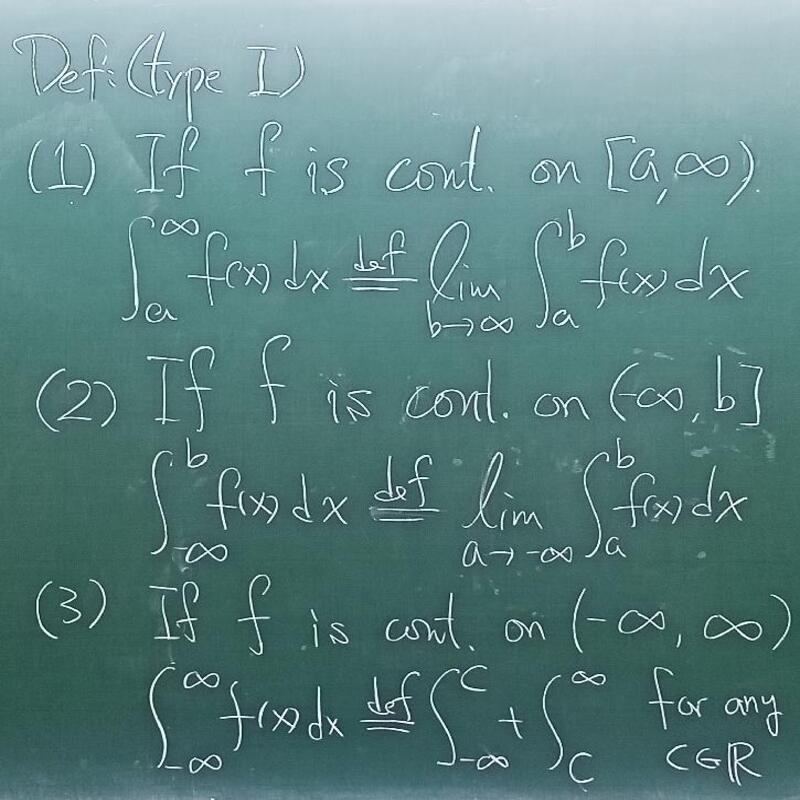 Def: (type I)
(1) If f is cont. on [a,∞)
∫_a^∞ f(x) dx \overset{def}{=} lim_{b→∞} ∫_a^b f(x) dx
(2) If f is cont. on (-∞, b]
∫_{-∞}^b f(x) dx \overset{def}{=} lim_{a→-∞} ∫_a^b f(x) dx
(3) If f is cont. on (-∞, ∞)
∫_{-∞}^∞ f(x) dx \overset{def}{=} ∫_{-∞}^c + ∫_c^∞ for any
c∈ℝ